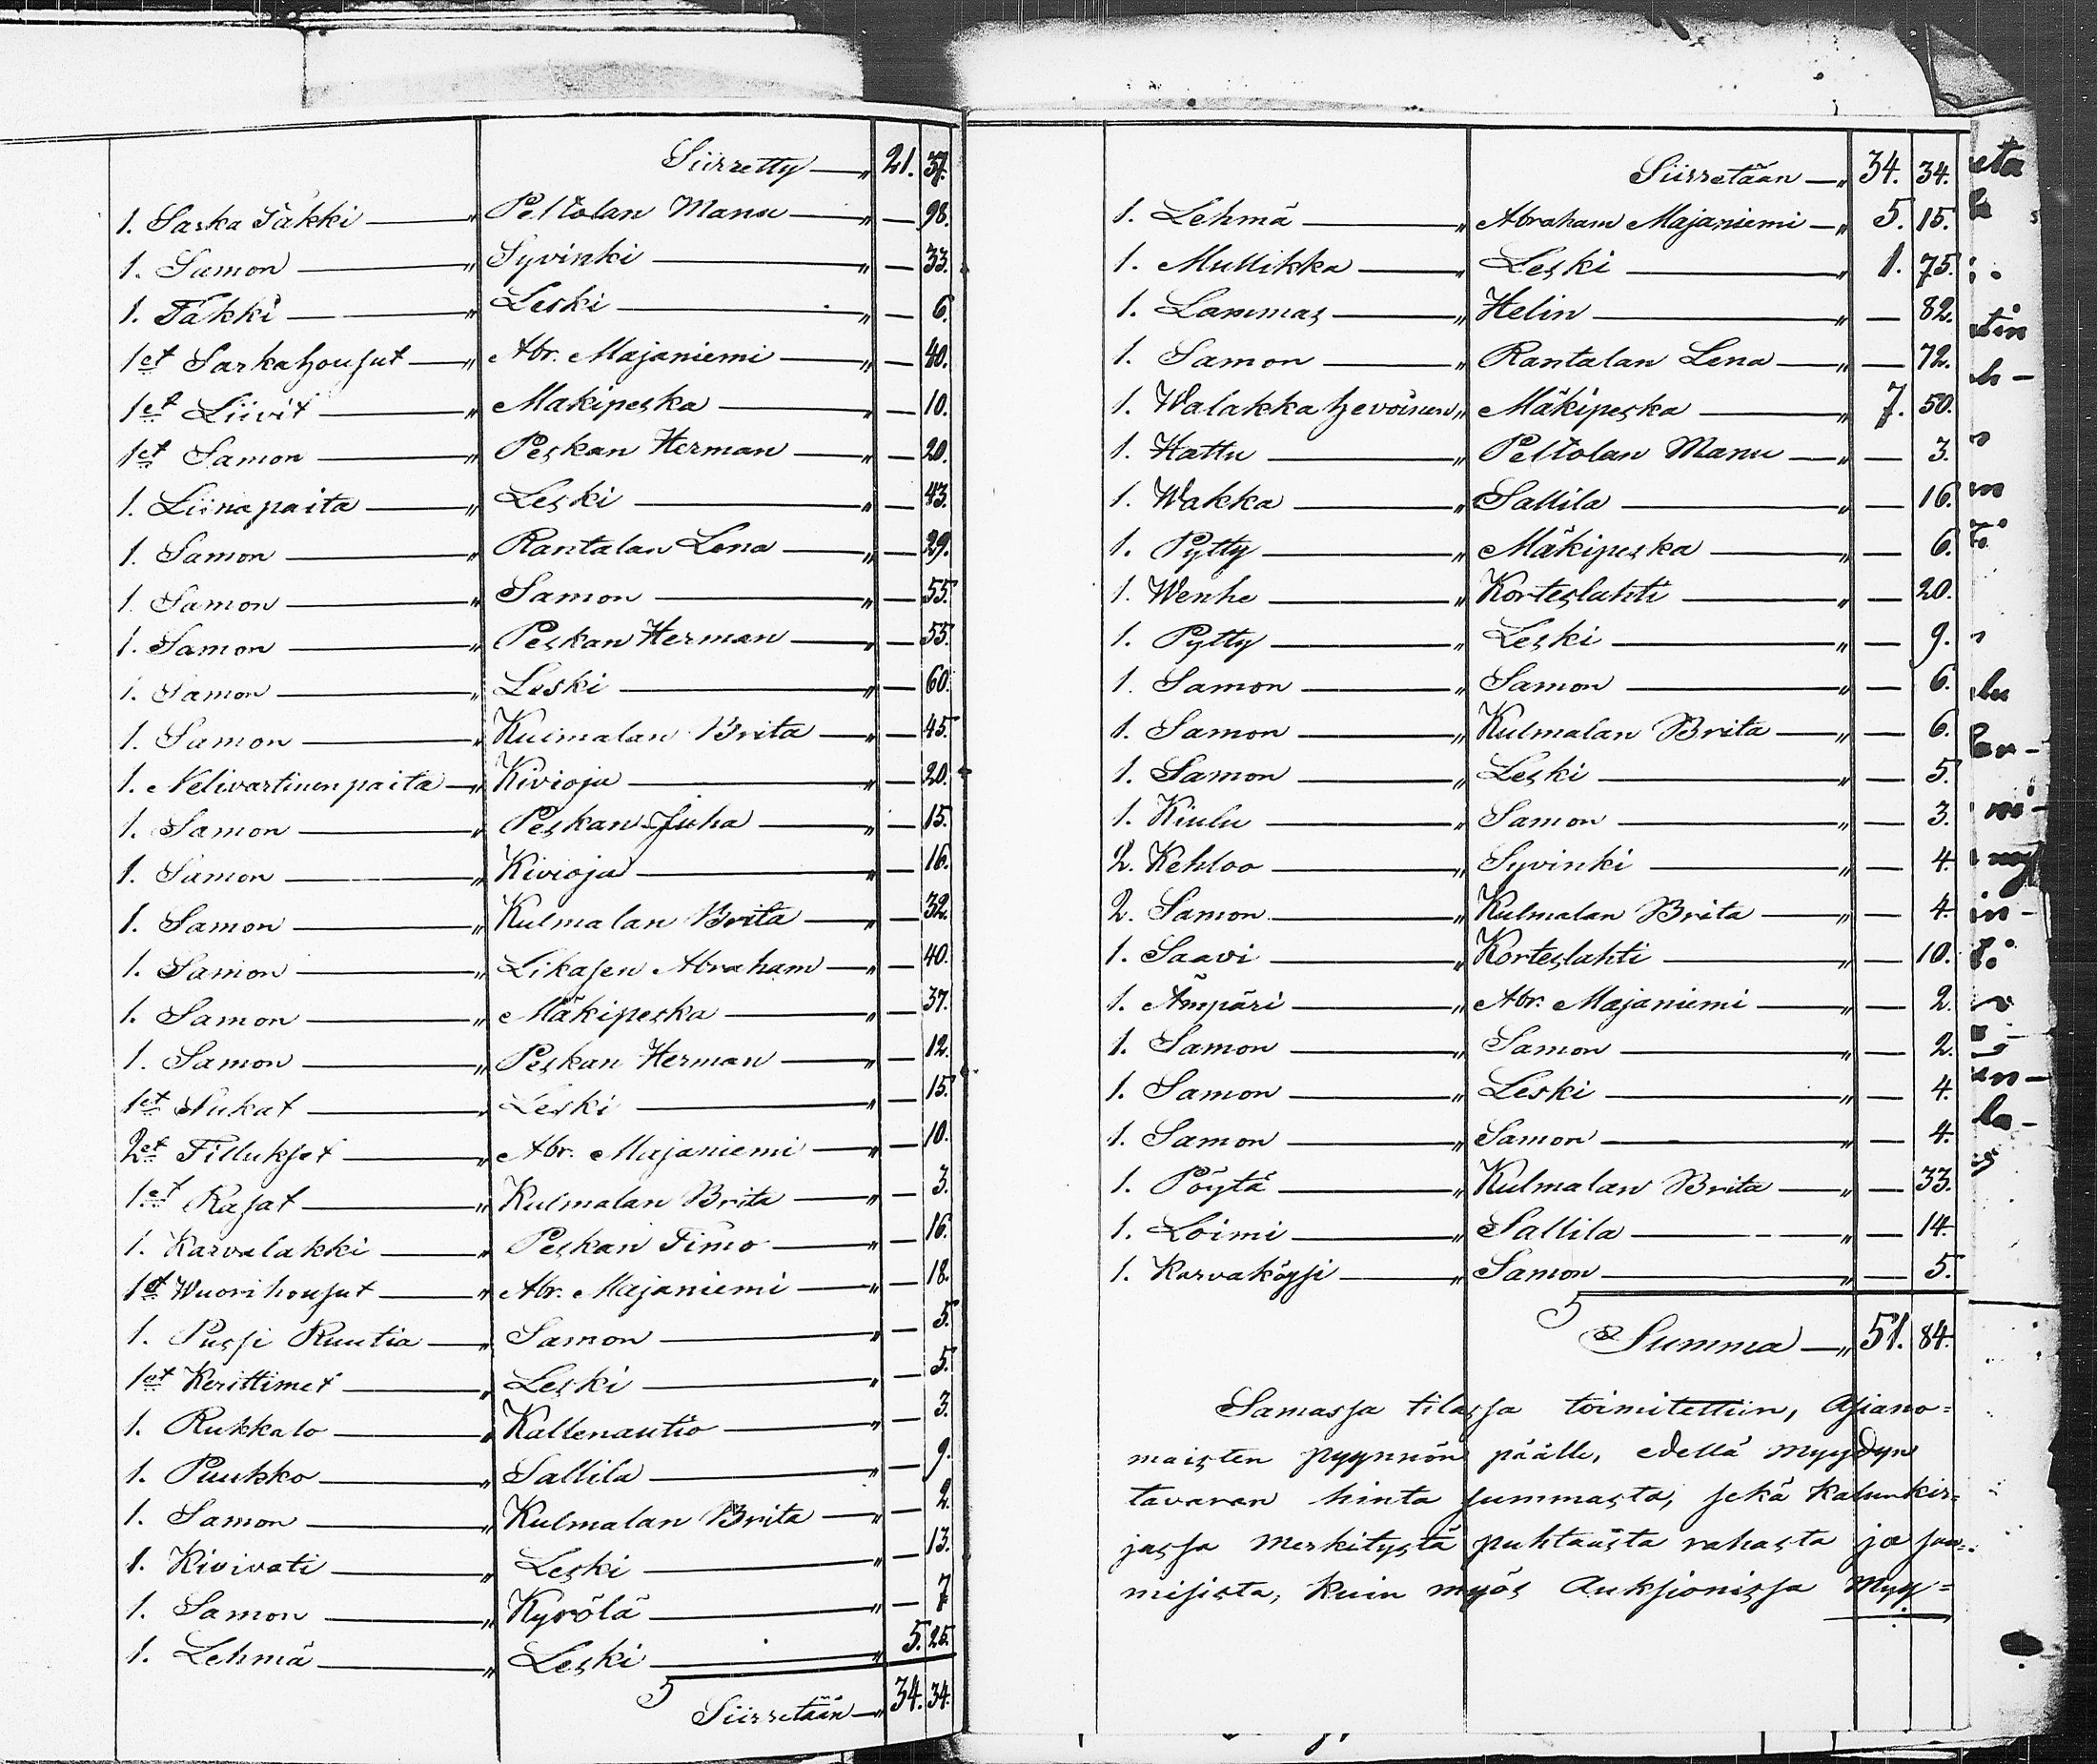 Siirretty — „ 21. 37.
1. Sarka Takki — „ Peltolan Manu — „ — 98.
1. Samon — „ Syvinki — „ — 33.
1. Takki — „ Leski — „ — 6.
1et Sarkahousut — „ Abr. Majaniemi — „ — 40.
1et Liivit — „ Mäkipeska — „ — 10.
1et Samon — „ Peskan Herman — „ — 20.
1. Liinapaita — „ Leski — „ — 43.
1. Samon — „ Rantalan Lena — „ — 29.
1. Samon — „ Samon — „ — 55.
1. Samon — „ Peskan Herman — „ — 55.
1. Samon — „ Leski — „ — 60.
1. Samon — „ Kulmalan Brita — „ — 45.
1. Nelivartinen paita — „ Kivioja — „ — 20.
1. Samon — „ Peskan Juha — „ — 15.
1. Samon — „ Kivioja — „ — 16.
1. Samon — „ Kulmalan Brita — „ — 32.
1. Samon — „ Likasen Abraham — „ — 40.
1. Samon — „ Mäkipeska — „ — 37.
1. Samon — „ Peskan Herman — „ — 12.
1et Sukat — „ Leski — „ — 15.
2et Tillukset — „ Abr. Majaniemi — „ — 10.
1et Rasat — „ Kulmalan Brita — „ — 3.
1. Karvalakki — „ Peskan Timo — „ — 16.
1et Wuorihousut — „ Abr. Majaniemi — „ — 18.
1. Pussi Ruutia — „ Samon — „ — 5.
1et Kerittimet — „ Leski — „ — 5.
1. Rukkalo — „ Kallenautio — „ — 3.
1. Puukko — „ Sallila — „ — 9.
1. Samon — „ Kulmalan Brita — „ — 2.
1. Kivivati — „ Leski — „ — 13.
1. Samon — „ Kyrölä — „ — 7
1. Lehmä — „ Leski — „ 5. 25.
Siirretään — „ 34. 34.
Siirretään — „ 34. 34.
1. Lehmä — „ Abraham Majaniemi — „ 5. 15.
1. Mullikka — „ Leski — „ 1. 75.
1. Lammas — „ Helin — „ — 82.
1. Samon — „ Rantalan Lena — „ — 72.
1. Walakka hevoinen „ Mäkipeska — „ 7. 50.
1. Hattu — „ Peltolan Manu — „ — 3.
1. Wakka — „ Sallila — „ — 16.
1. Pytty — „ Mäkipeska — „ — 6.
1. Wenhe — „ Korteslahti — „ — 20.
1. Pytty — „ Leski — „ — 9.
1. Samon — „ Samon — „ — 6.
1. Samon — „ Kulmalan Brita — „ — 6.
1. Samon — „ Leski — „ — 5.
1. Kiulu — „ Samon — „ — 3.
2. Kehloo — „ Syvinki — „ — 4.
2. Samon — „ Kulmalan Brita — „ — 4.
1. Saavi — „ Korteslahti — „ — 10.
1. Ämpäri — „ Abr. Majaniemi — „ — 2.
1. Samon — „ Samon — „ — 2.
1. Samon — „ Leski — „ — 4.
1. Samon — „ Samon — „ — 4.
1. Pöytä — „ Kulmalan Brita — „ — 33.
1. Loimi — „ Sallila — „ — 14.
1. Karvaköysi — „ Samon — „ — 5.
Summa — „ 51. 84.
Samassa tilassa toimitettiin, Asiano=
maisten pyynnön päälle, edellä myydyn
tavaran hinta summasta, sekä kalunkir=
jassa merkitystä puhtaasta rahasta ja saa=
misista, kuin myös Auksionissa myy=